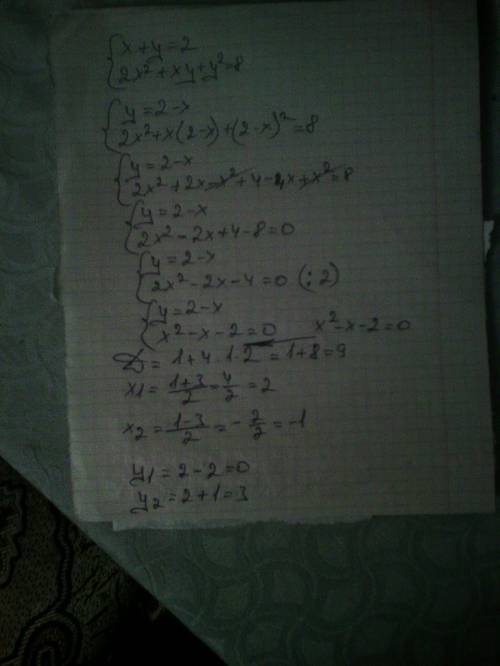 {x+y=2
{2x²+xy+y²=8
{y=2-x
{2x²+x(2-x)+(2-x)²=8
{y=2-x
{2x²+2x-x²+4-4x+x²=8
{y=2-x
{2x²-2x+4-8=0
{y=2-x
{2x²-2x-4=0 (:2)
{y=2-x
{x²-x-2=0 x²-x-2=0
D=1+4·1·2=1+8=9
x1=(1+3)/2=4/2=2
x2=(1-3)/2=-2/2=-1
y1=2-2=0
y2=2+1=3